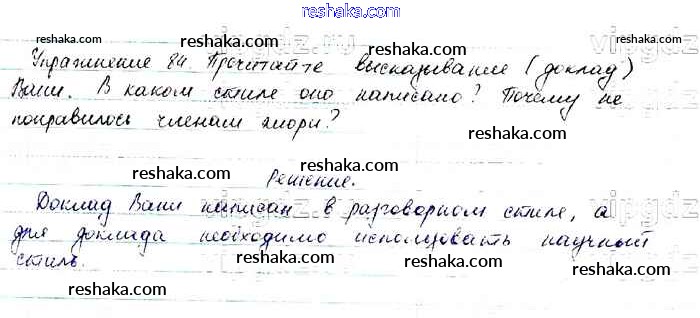 reshaka.com
Упражнение 84. Прочитайте высказывание (доклад)
Вани. В каком стиле оно написано? Почему не
понравилось членам жюри?
Решение.
Доклад Вани написан в разговорном стиле, а
для доклада необходимо использовать научный
стиль.
reshaka.com
reshaka.com
reshaka.com
reshaka.com
reshaka.com
reshaka.com
reshaka.com
reshaka.com
reshaka.com
reshaka.com
reshaka.com
reshaka.com
vipgdz.ru
vipgdz
vipgdz.ru
vipgdz